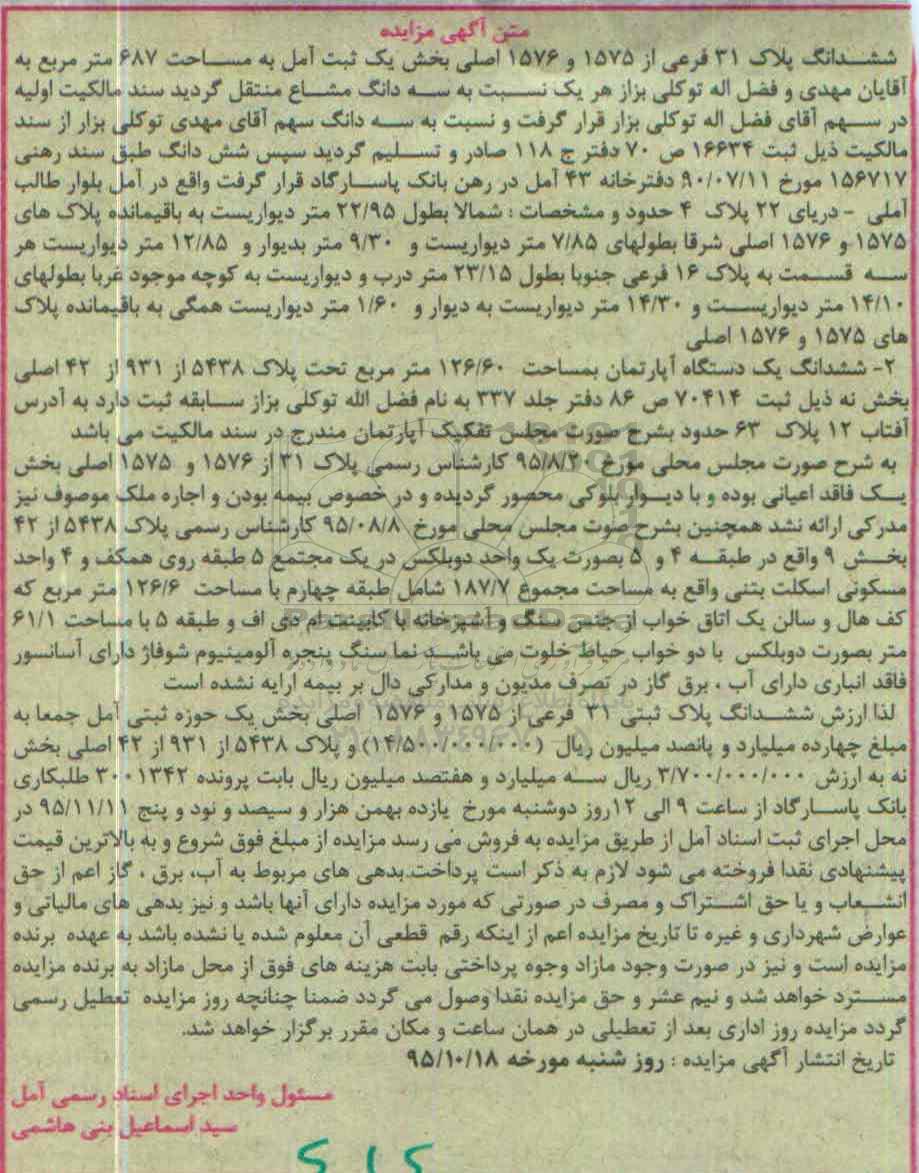 متن آگهی مزایده
ششدانگ پلاک ۳۱ فرعی از ۱۵۷۵ و ۱۵۷۶ اصلی بخش یک ثبت آمل به مساحت ۶۸۷ متر مربع به
آقایان مهدی و فضل اله توکلی بزاز هر یک نسبت به سه دانگ مشاع منتقل گردید سند مالکیت اولیه
در سهم آقای فضل اله توکلی بزاز قرار گرفت و نسبت به سه دانگ سهم آقای مهدی توکلی بزار از سند
مالکیت ذیل ثبت ۱۶۶۳۴ ص ۷۰ دفتر ج ۱۱۸ صادر و تسلیم گردید سپس شش دانگ طبق سند رهنی
۱۵۶۷۱۷ مورخ ۹۰/۰۷/۱۱ دفترخانه ۴۳ آمل در رهن بانک پاسارگاد قرار گرفت واقع در آمل بلوار طالب
آملی - دریای ۲۲ پلاک ۴ حدود و مشخصات : شمالا بطول ۲۲/۹۵ متر دیواریست به باقیمانده پلاک های
۱۵۷۵ و ۱۵۷۶ اصلی شرقا بطولهای ۷/۸۵ متر دیواریست و ۹/۳۰ متر بدیوار و ۱۲/۸۵ متر دیواریست هر
سه قسمت به پلاک ۱۶ فرعی جنوبا بطول ۲۳/۱۵ متر درب و دیواریست به کوچه موجود غربا بطولهای
۱۴/۱۰ متر دیواریست و ۱۴/۳۰ متر دیواریست به دیوار و ۱/۶۰ متر دیواریست همگی به باقیمانده پلاک
های ۱۵۷۵ و ۱۵۷۶ اصلی
۲- ششدانگ یک دستگاه آپارتمان بمساحت ۱۲۶/۶۰ متر مربع تحت پلاک ۵۴۳۸ از ۹۳۱ از ۴۲ اصلی
بخش نه ذیل ثبت ۷۰۴۱۴ ص ۸۶ دفتر جلد ۳۳۷ به نام فضل الله توکلی بزاز سابقه ثبت دارد به آدرس
آفتاب ۱۲ پلاک ۶۳ حدود بشرح صورت مجلس تفکیک آپارتمان مندرج در سند مالکیت می باشد
به شرح صورت مجلس محلی مورخ ۹۵/۸/۲۰ کارشناس رسمی پلاک ۳۱ از ۱۵۷۶ و ۱۵۷۵ اصلی بخش
یک فاقد اعیانی بوده و با دیوار بلوکی محصور گردیده و در خصوص بیمه بودن و اجاره ملک موصوف نیز
مدرکی ارائه نشد همچنین بشرح صوت مجلس محلی مورخ ۹۵/۰۸/۸ کارشناس رسمی پلاک ۵۴۳۸ از ۴۲
بخش ۹ واقع در طبقه ۴ و ۵ بصورت یک واحد دوبلکس در یک مجتمع ۵ طبقه روی همکف و ۴ واحد
مسکونی اسکلت بتنی واقع به مساحت مجموع ۱۸۷/۷ شامل طبقه چهارم با مساحت ۱۲۶/۶ متر مربع که
کف هال و سالن یک اتاق خواب از جنس سنگ و آشپزخانه با کابینت ام دی اف و طبقه ۵ با مساحت ۶۱/۱
متر بصورت دوبلکس با دو خواب حیاط خلوت می باشد نما سنگ پنجره آلومینیوم شوفاژ دارای آسانسور
فاقد انباری دارای آب ، برق گاز در تصرف مدیون و مدارکی دال بر بیمه ارایه نشده است
لذا ارزش ششدانگ پلاک ثبتی ۳۱ فرعی از ۱۵۷۵ و ۱۵۷۶ اصلی بخش یک حوزه ثبتی آمل جمعا به
مبلغ چهارده میلیارد و پانصد میلیون ریال (۱۴/۵۰۰/۰۰۰/۰۰۰) و پلاک ۵۴۳۸ از ۹۳۱ از ۴۲ اصلی بخش
نه به ارزش ۳/۷۰۰/۰۰۰/۰۰۰ ریال سه میلیارد و هفتصد میلیون ریال بابت پرونده ۳۰۰۱۳۴۲ طلبکاری
بانک پاسارگاد از ساعت ۹ الی ۱۲روز دوشنبه مورخ یازده بهمن هزار و سیصد و نود و پنج ۹۵/۱۱/۱۱ در
محل اجرای ثبت اسناد آمل از طریق مزایده به فروش می رسد مزایده از مبلغ فوق شروع و به بالاترین قیمت
پیشنهادی نقدا فروخته می شود لازم به ذکر است پرداخت بدهی های مربوط به آب، برق ، گاز اعم از حق
انشعاب و یا حق اشتراک و مصرف در صورتی که مورد مزایده دارای آنها باشد و نیز بدهی های مالیاتی و
عوارض شهرداری و غیره تا تاریخ مزایده اعم از اینکه رقم قطعی آن معلوم شده یا نشده باشد به عهده برنده
مزایده است و نیز در صورت وجود مازاد وجوه پرداختی بابت هزینه های فوق از محل مازاد به برنده مزایده
مسترد خواهد شد و نیم عشر و حق مزایده نقدا وصول می گردد ضمنا چنانچه روز مزایده تعطیل رسمی
گردد مزایده روز اداری بعد از تعطیلی در همان ساعت و مکان مقرر برگزار خواهد شد.
تاریخ انتشار آگهی مزایده : روز شنبه مورخه ۹۵/۱۰/۱۸
مسئول واحد اجرای اسناد رسمی آمل
سید اسماعیل بنی هاشمی